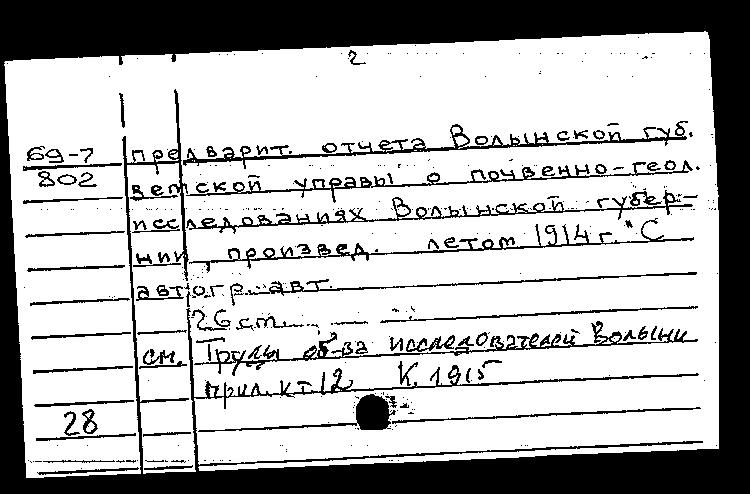 2
69-7 предварит. отчета Волынской губ.
802 земской управы о почвенно-геол.
исследованиях Волынской губер-
нии, произвед. летом 1914 г." С
автогр. авт.
26 cm.
см. Труды об-ва исследователей Волыни
прил. к т 12 К. 1915
28